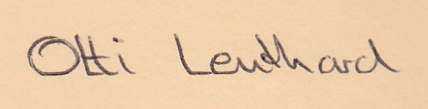 Otti Leuthard